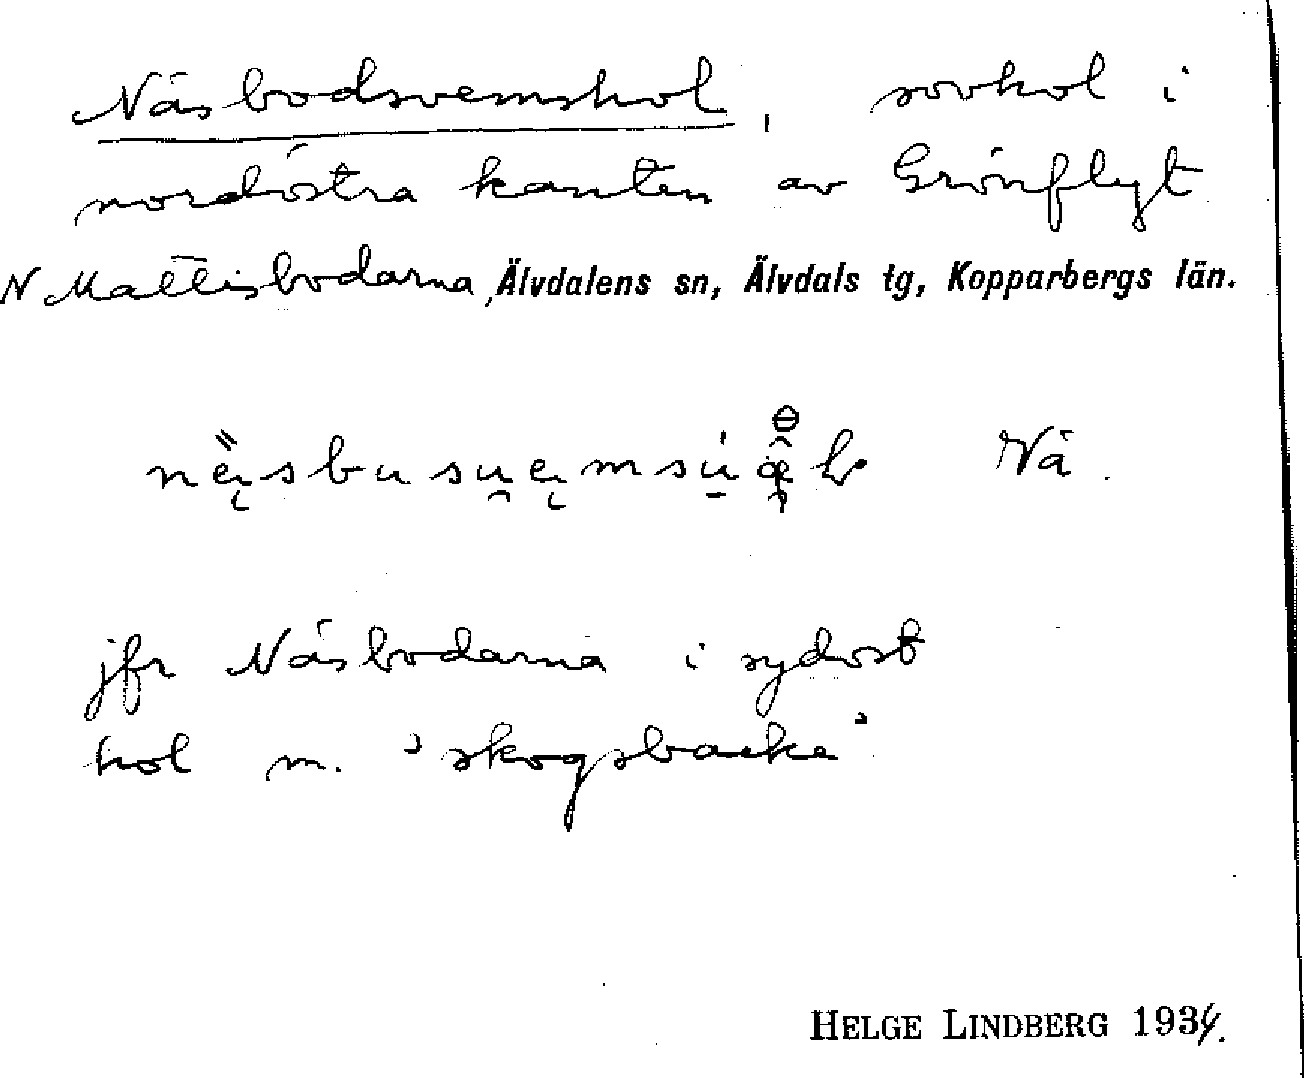 Näsbodsvemshol, rovhol i
nordöstra kanten av Grönflyt
N Mattisbodarna, Älvdalens sn, Älvdals tg, Kopparbergs län.
Nä.
jfr Näsbodarna i sydost
hol m. "skogsbacke"
HELGE LINDBERG 1934.